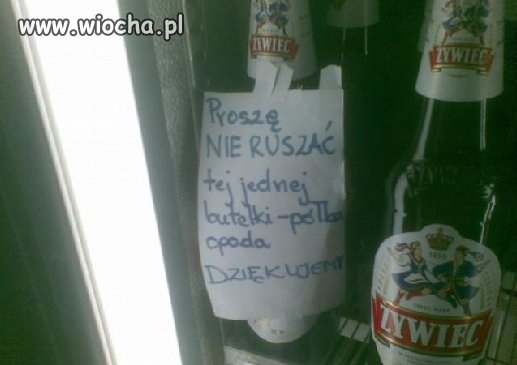 www.wiocha.pl
ŻYWIEC
ŻYWIEC
Proszę
NIE RUSZAĆ
tej jednej
butelki - półka
opada
DZIĘKUJEMY
ŻYWIEC